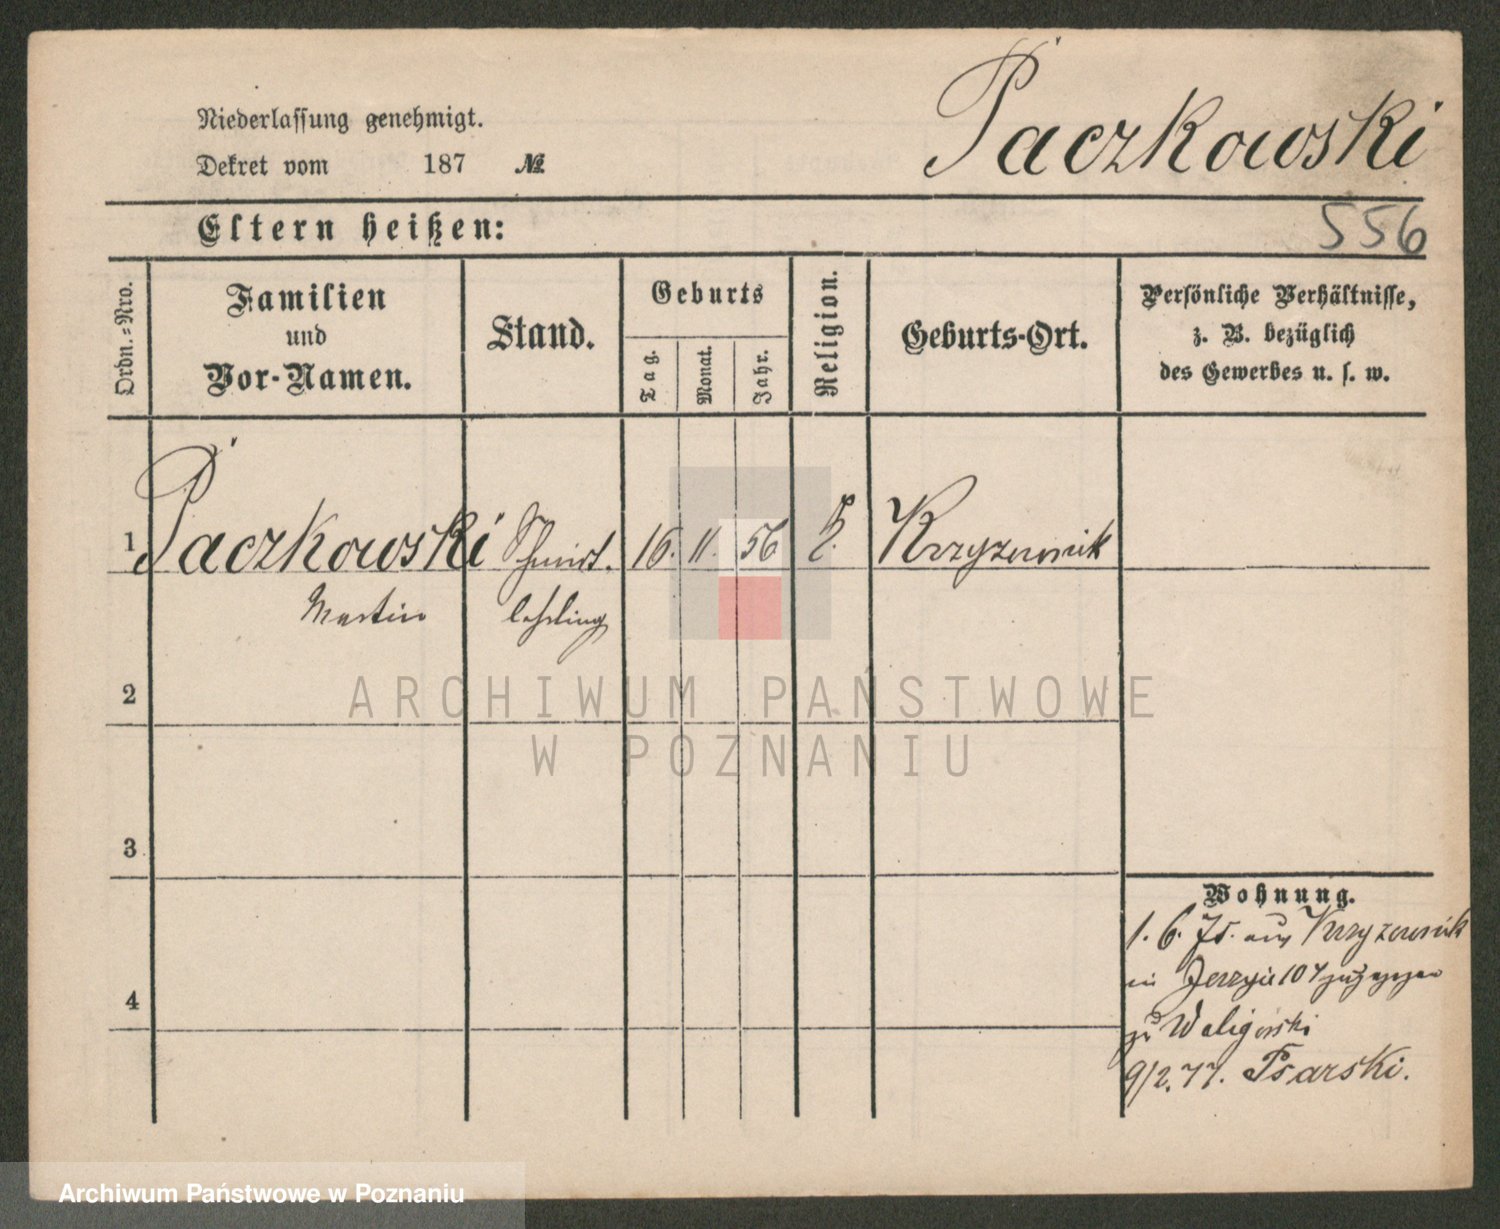 Paczkowski
Niederlassung genehmigt.
Dekret vom 187 №
Eltern heißen:
556
Ordn.=Nro.
Familien
und
Vor-Namen.
Stand.
Geburts
Tag.
Monat.
Jahr.
Religion.
Geburts-Ort.
Persönliche Verhältnisse,
z. B. bezüglich
des Gewerbes u. s. w.
1 Paczkowski Schmidt. 16. 11. 56 Krzyzownik
Martin lehrling
2
ARCHIWUM PAŃSTWOWE
W POZNANIU
3
4
Wohnung.
1. 6. aus Krzyzownik
in Jerzyce 107 zugezogen
zu Waligorski
9/2.77. Psarski.
Archiwum Państwowe w Poznaniu